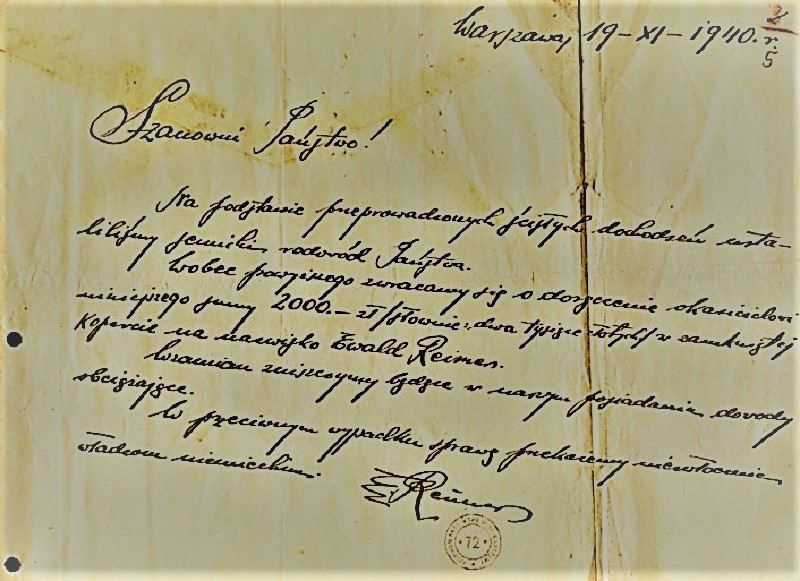 Warszawa, 19-XI-1940. r.
2
5
Szanowni Państwo!
Na podstawie przeprowadzonych ścisłych dochodzeń usta-
liliśmy semicki rodowód Państwa.
Wobec powyższego zwracamy się o doręczenie okazicielowi
niniejszego sumy 2000.- zł /słownie: dwa tysiące złotych/ w zamkniętej
kopercie na nazwisko Ewald Reimer.
Wzamian zniszczymy będące w naszym posiadaniu dowody
obciążające.
W przeciwnym wypadku sprawę przekażemy niezwłocznie
władzom niemieckim.
E Reimer
72